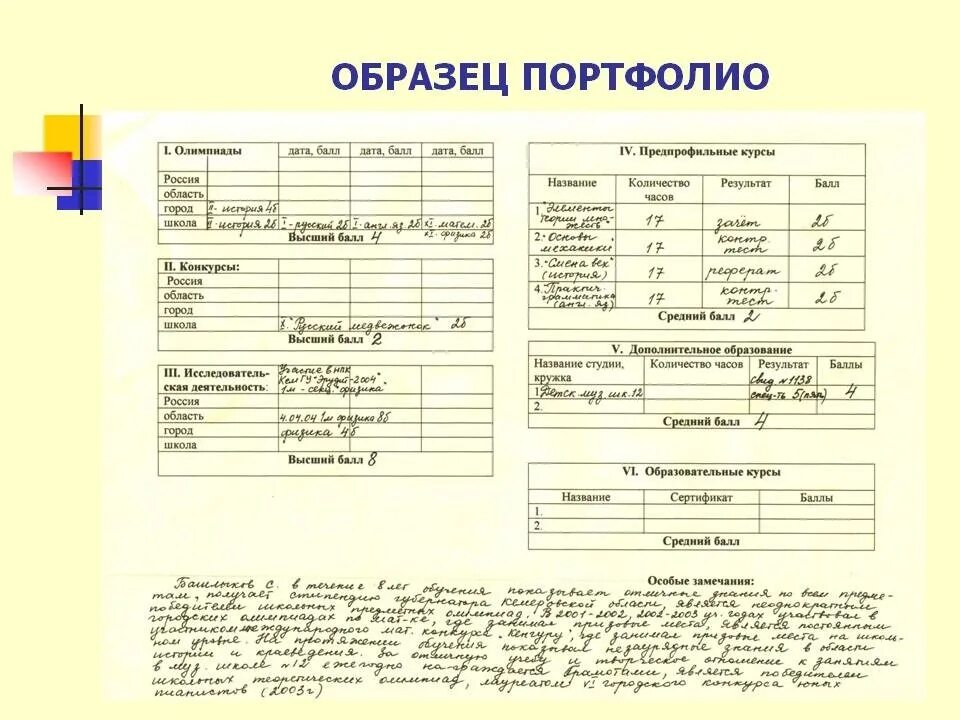 ОБРАЗЕЦ ПОРТФОЛИО
I. Олимпиады дата, балл дата, балл дата, балл
Россия
область
город II - история 4б
школа II - история 2б I - русский 2б I - англ. яз. 2б матем. 2б
физика 2б
Высший балл 4
II. Конкурсы:
Россия
область
город
школа "Русский медвежонок" 2б
Высший балл 2
III. Исследователь-
ская деятельность:
Участие в НПК
КемГУ "Эрудит-2004"
1м - секц. физика
Россия
область 4.04.04 1м физика 8б
город физика 4б
школа
Высший балл 8
IV. Предпрофильные курсы
Название Количество часов Результат Балл
1. Элементы теории множеств 17 зачёт 2б
2. Основы механики 17 контр. тест 2б
3. "Смена век" (история) 17 реферат 2б
4. Практич. грамматика (англ. яз) 17 контр. тест 2б
Средний балл 2
V. Дополнительное образование
Название студии, кружка Количество часов Результат Баллы
1. Детск. муз. шк. 12 свид. №1138 спец-ть 5 4
2.
Средний балл 4
VI. Образовательные курсы
Название Сертификат Баллы
1.
2.
Средний балл
Особые замечания:
Башлыков С. в течение 8 лет обучения показывает отличные знания по всем предме-
там, получает стипендию губернатора Кемеровской области, является неоднократным
победителем школьных предметных олимпиад. В 2001-2002, 2002-2003 уч. годах участвовал в
городских олимпиадах по мат-ке, где занимал призовые места, является постоянным
участником международного мат. конкурса "Кенгуру", где занимал призовые места на школь-
ном уровне. На протяжении обучения показывал незаурядные знания в области
истории и краеведения. За отличную учебу и творческое отношение к занятиям
в муз. школе №12 ежегодно награждается грамотами, является победителем
школьных теоретических олимпиад, лауреатом VI городского конкурса юных
пианистов (2003г)